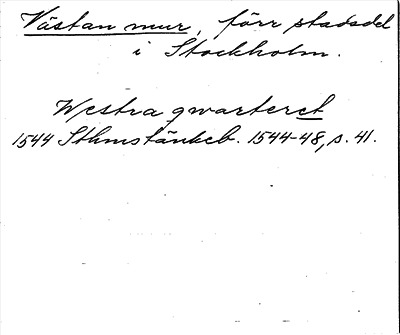 Västan mur, förr stadsdel
i Stockholm.
Westra qwarteret
1544 Sthmstänkeb. 1544-48, s. 41.